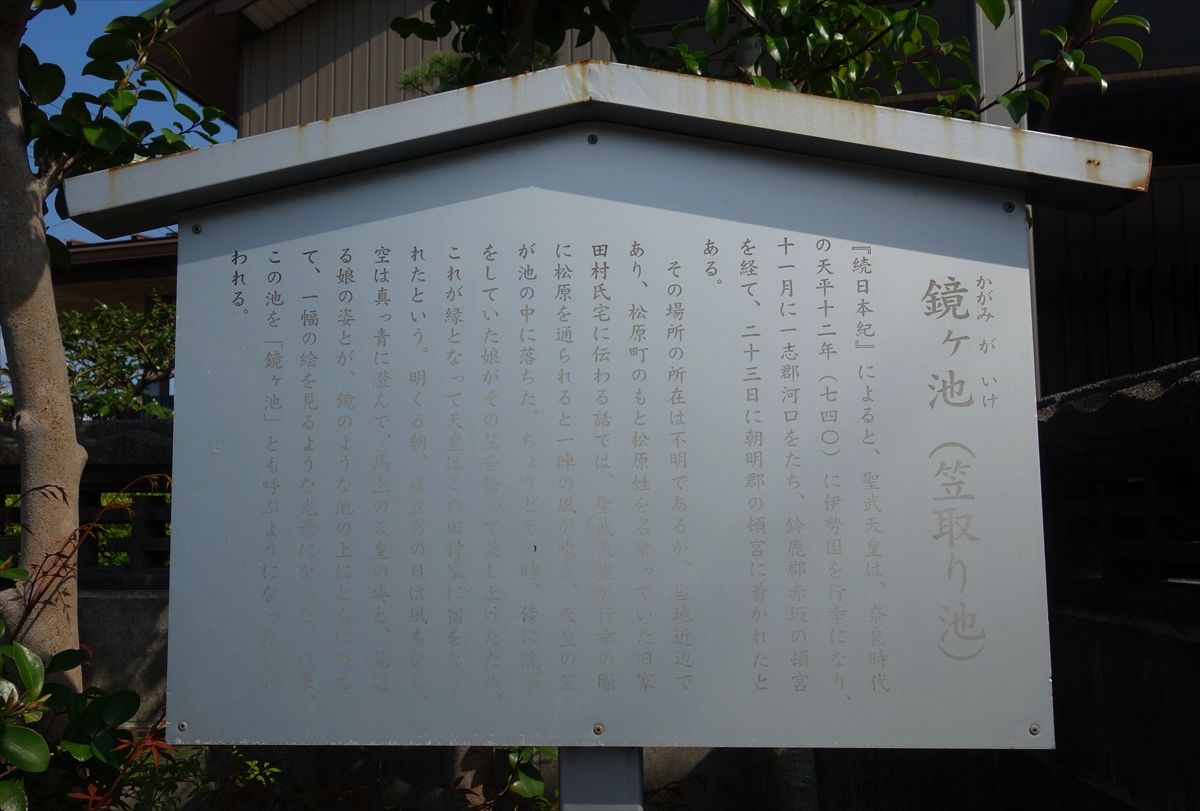 鏡ヶ池（笠取り池）
かがみ が いけ
『続日本紀』によると、聖武天皇は、奈良時代
の天平十二年（七四〇）に伊勢国を行幸になり、
十一月に一志郡河口をたち、鈴鹿郡赤坂の頓宮
を経て、二十三日に朝明郡の頓宮に着かれたと
ある。
その場所の所在は不明であるが、当地近辺で
あり、松原町のもと松原姓を名乗っていた旧家
田村氏宅に伝わる話では、聖武天皇が行幸の際
に松原を通られると一陣の風が吹き、天皇の笠
が池の中に落ちた。ちょうどその時、傍に洗濯
をしていた娘がその笠を拾って差し上げた
これが縁となって天皇はこの田村家に宿を
れたという。明くる朝、旅立ちの日は風もなく、
空は真っ青に澄んで、馬上の天皇の姿と、見送
る娘の姿とが、鏡のような池の上にともに映え
て、一幅の絵を見るような光景になった。以来、
この池を「鏡ヶ池」とも呼ぶようになったとい
われる。